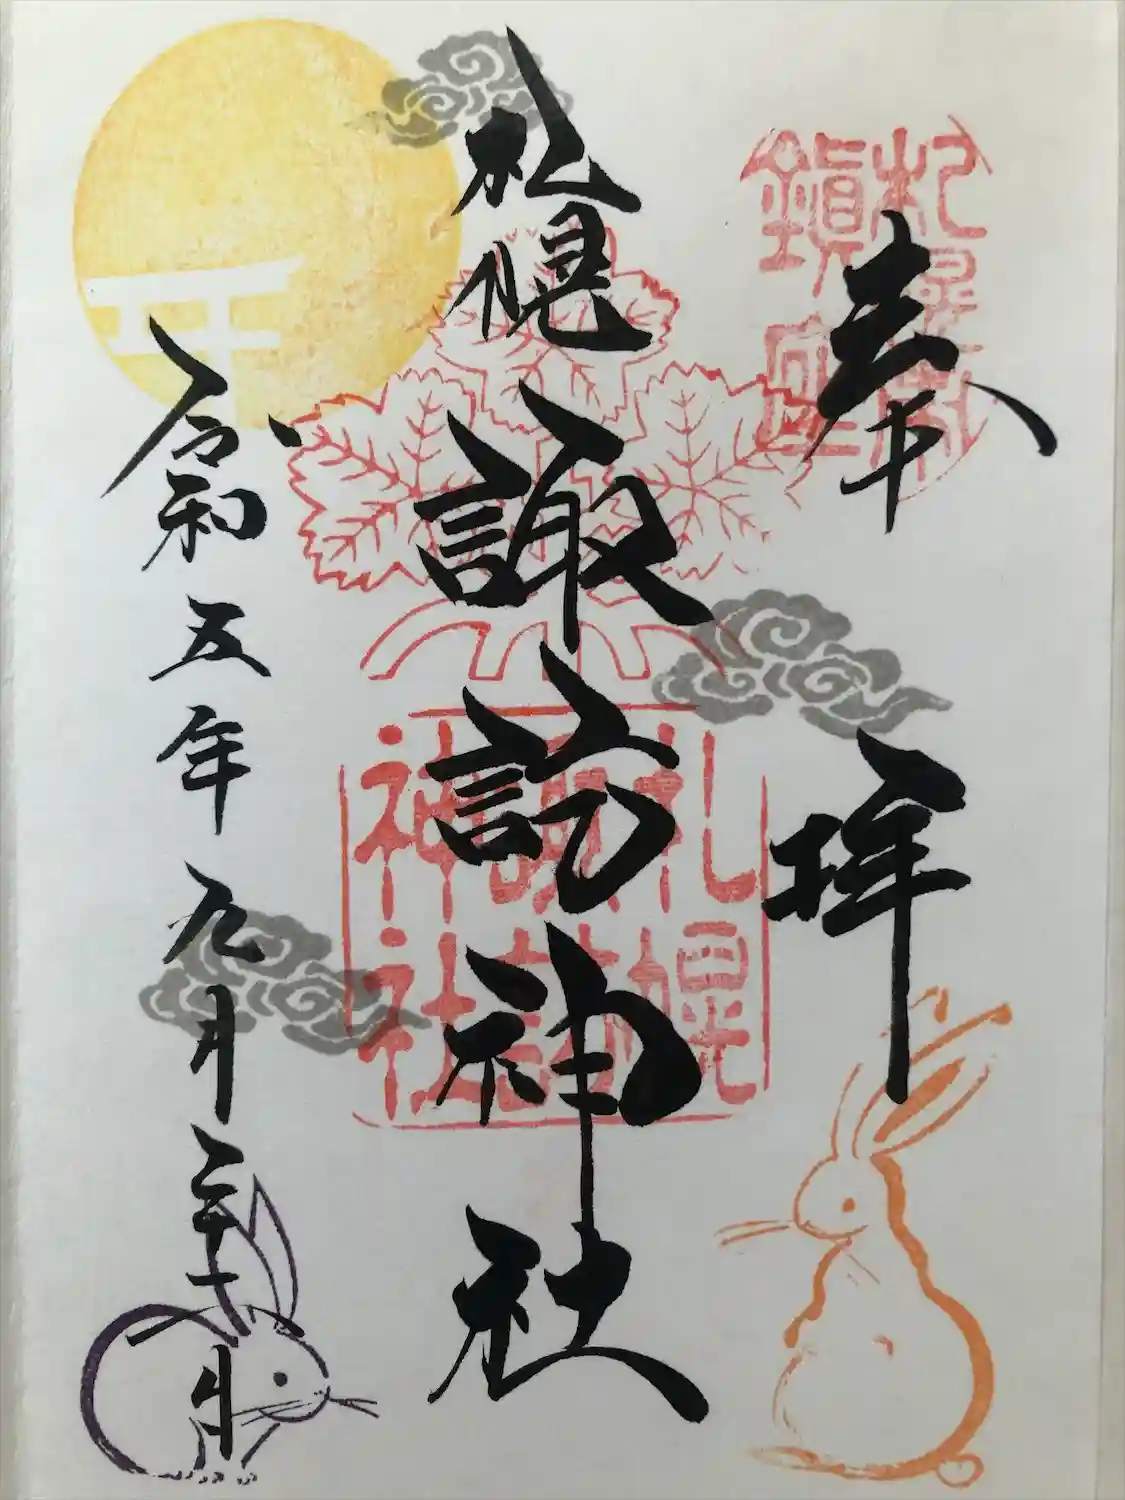 奉拝
札幌諏訪神社
令和五年九月二十八日
札幌諏訪神社